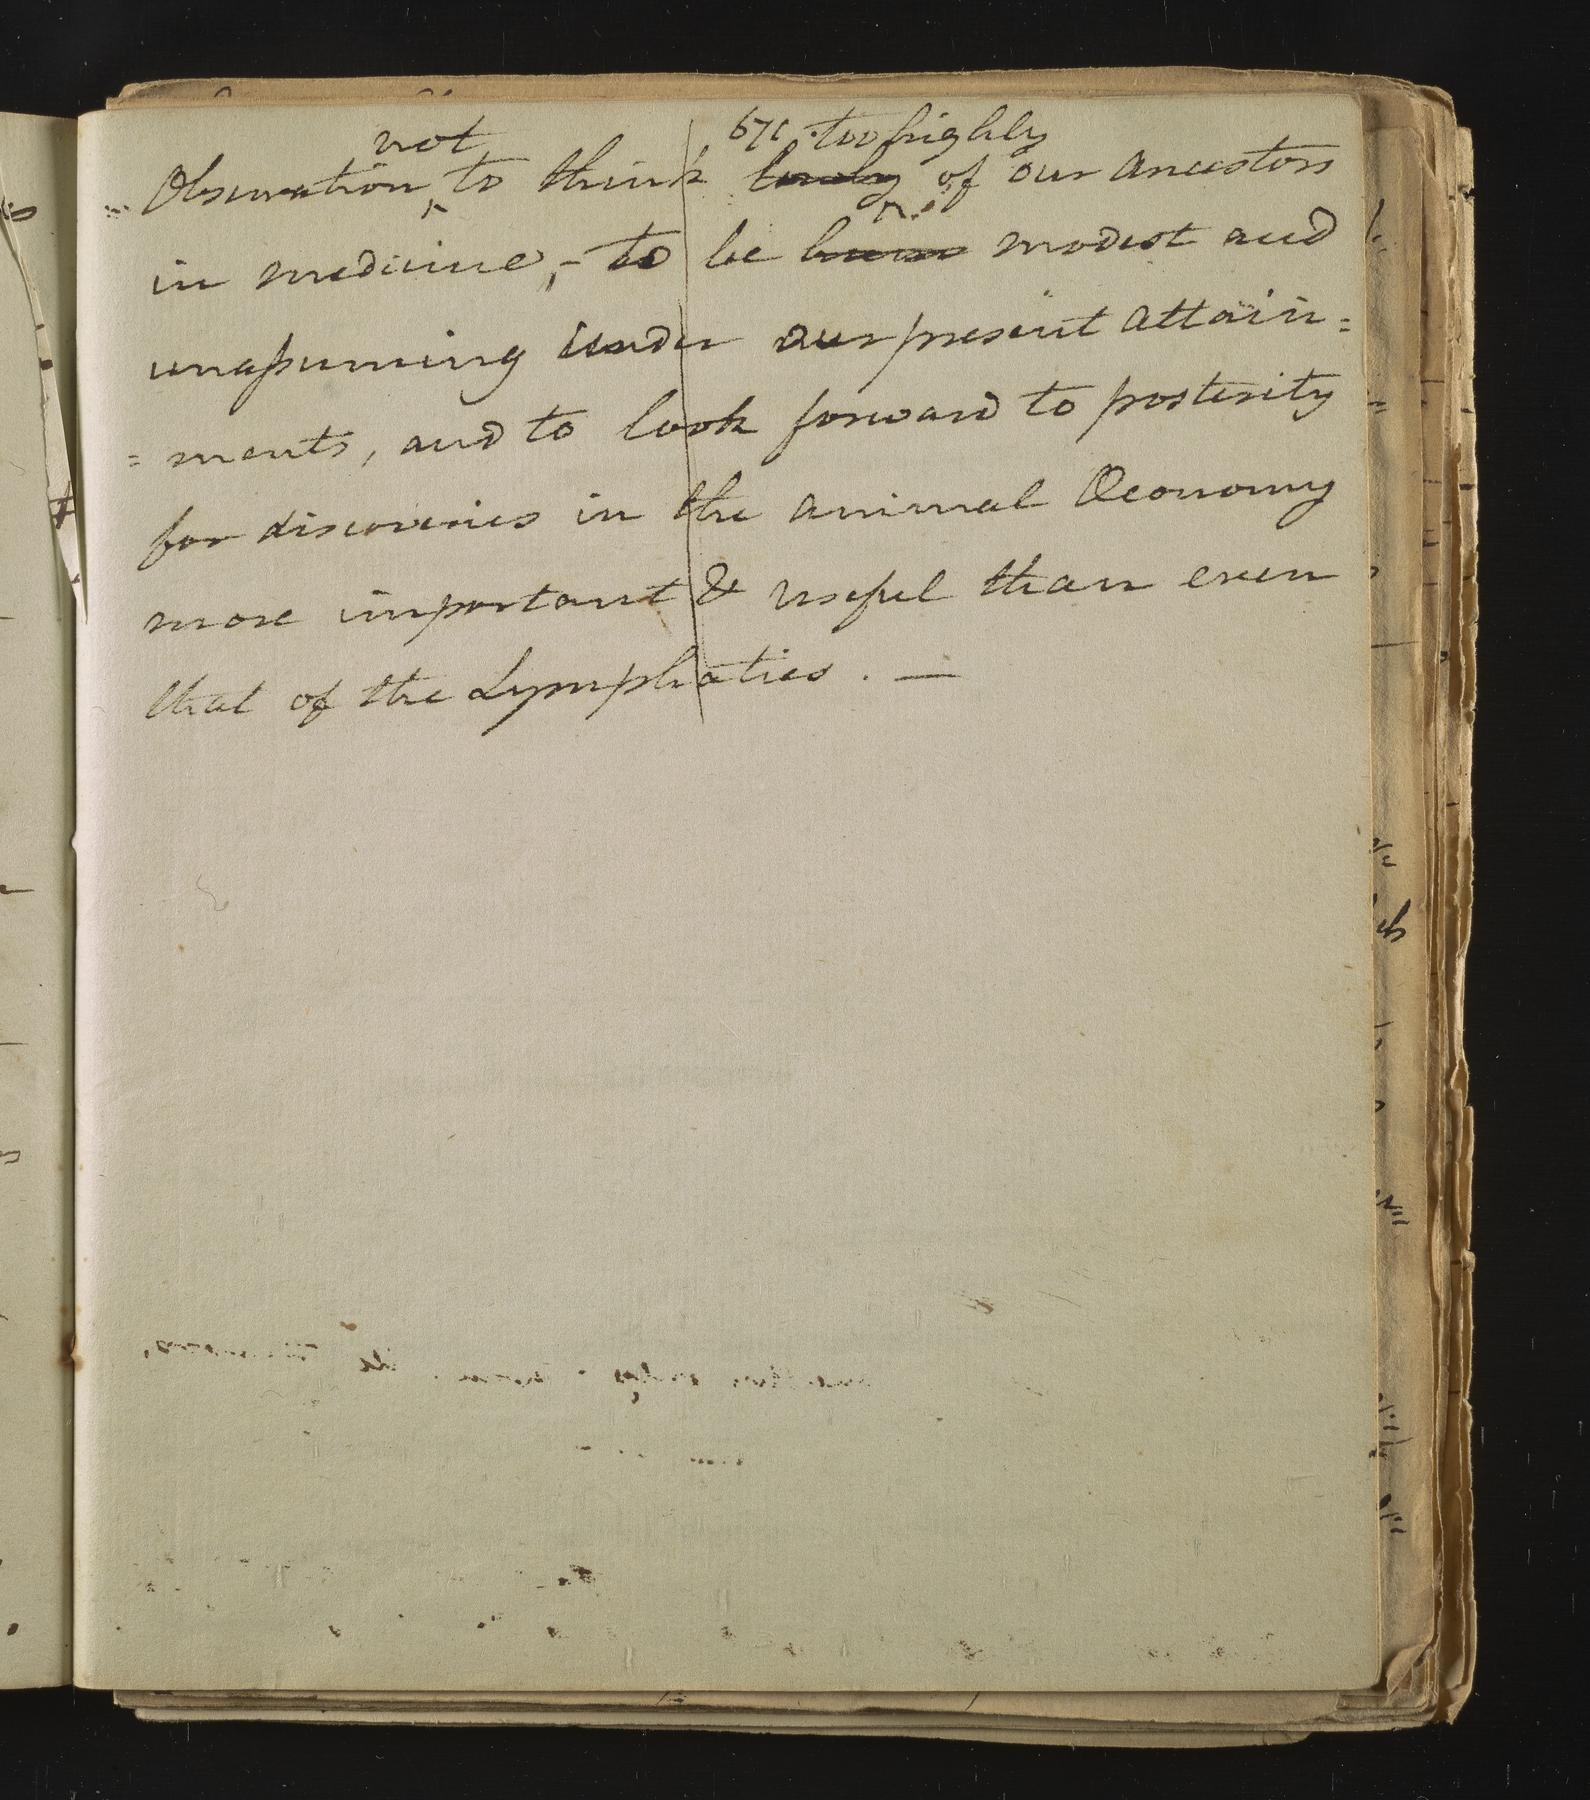 671. too highly
not
Observation to think lowly of our ancestors
in medicine, - to be modest and
unassuming under our present attain=
= ments, and to look forward to posterity
for discoveries in the animal Oeconomy
more important & useful than even
that of the Lymphatics. —